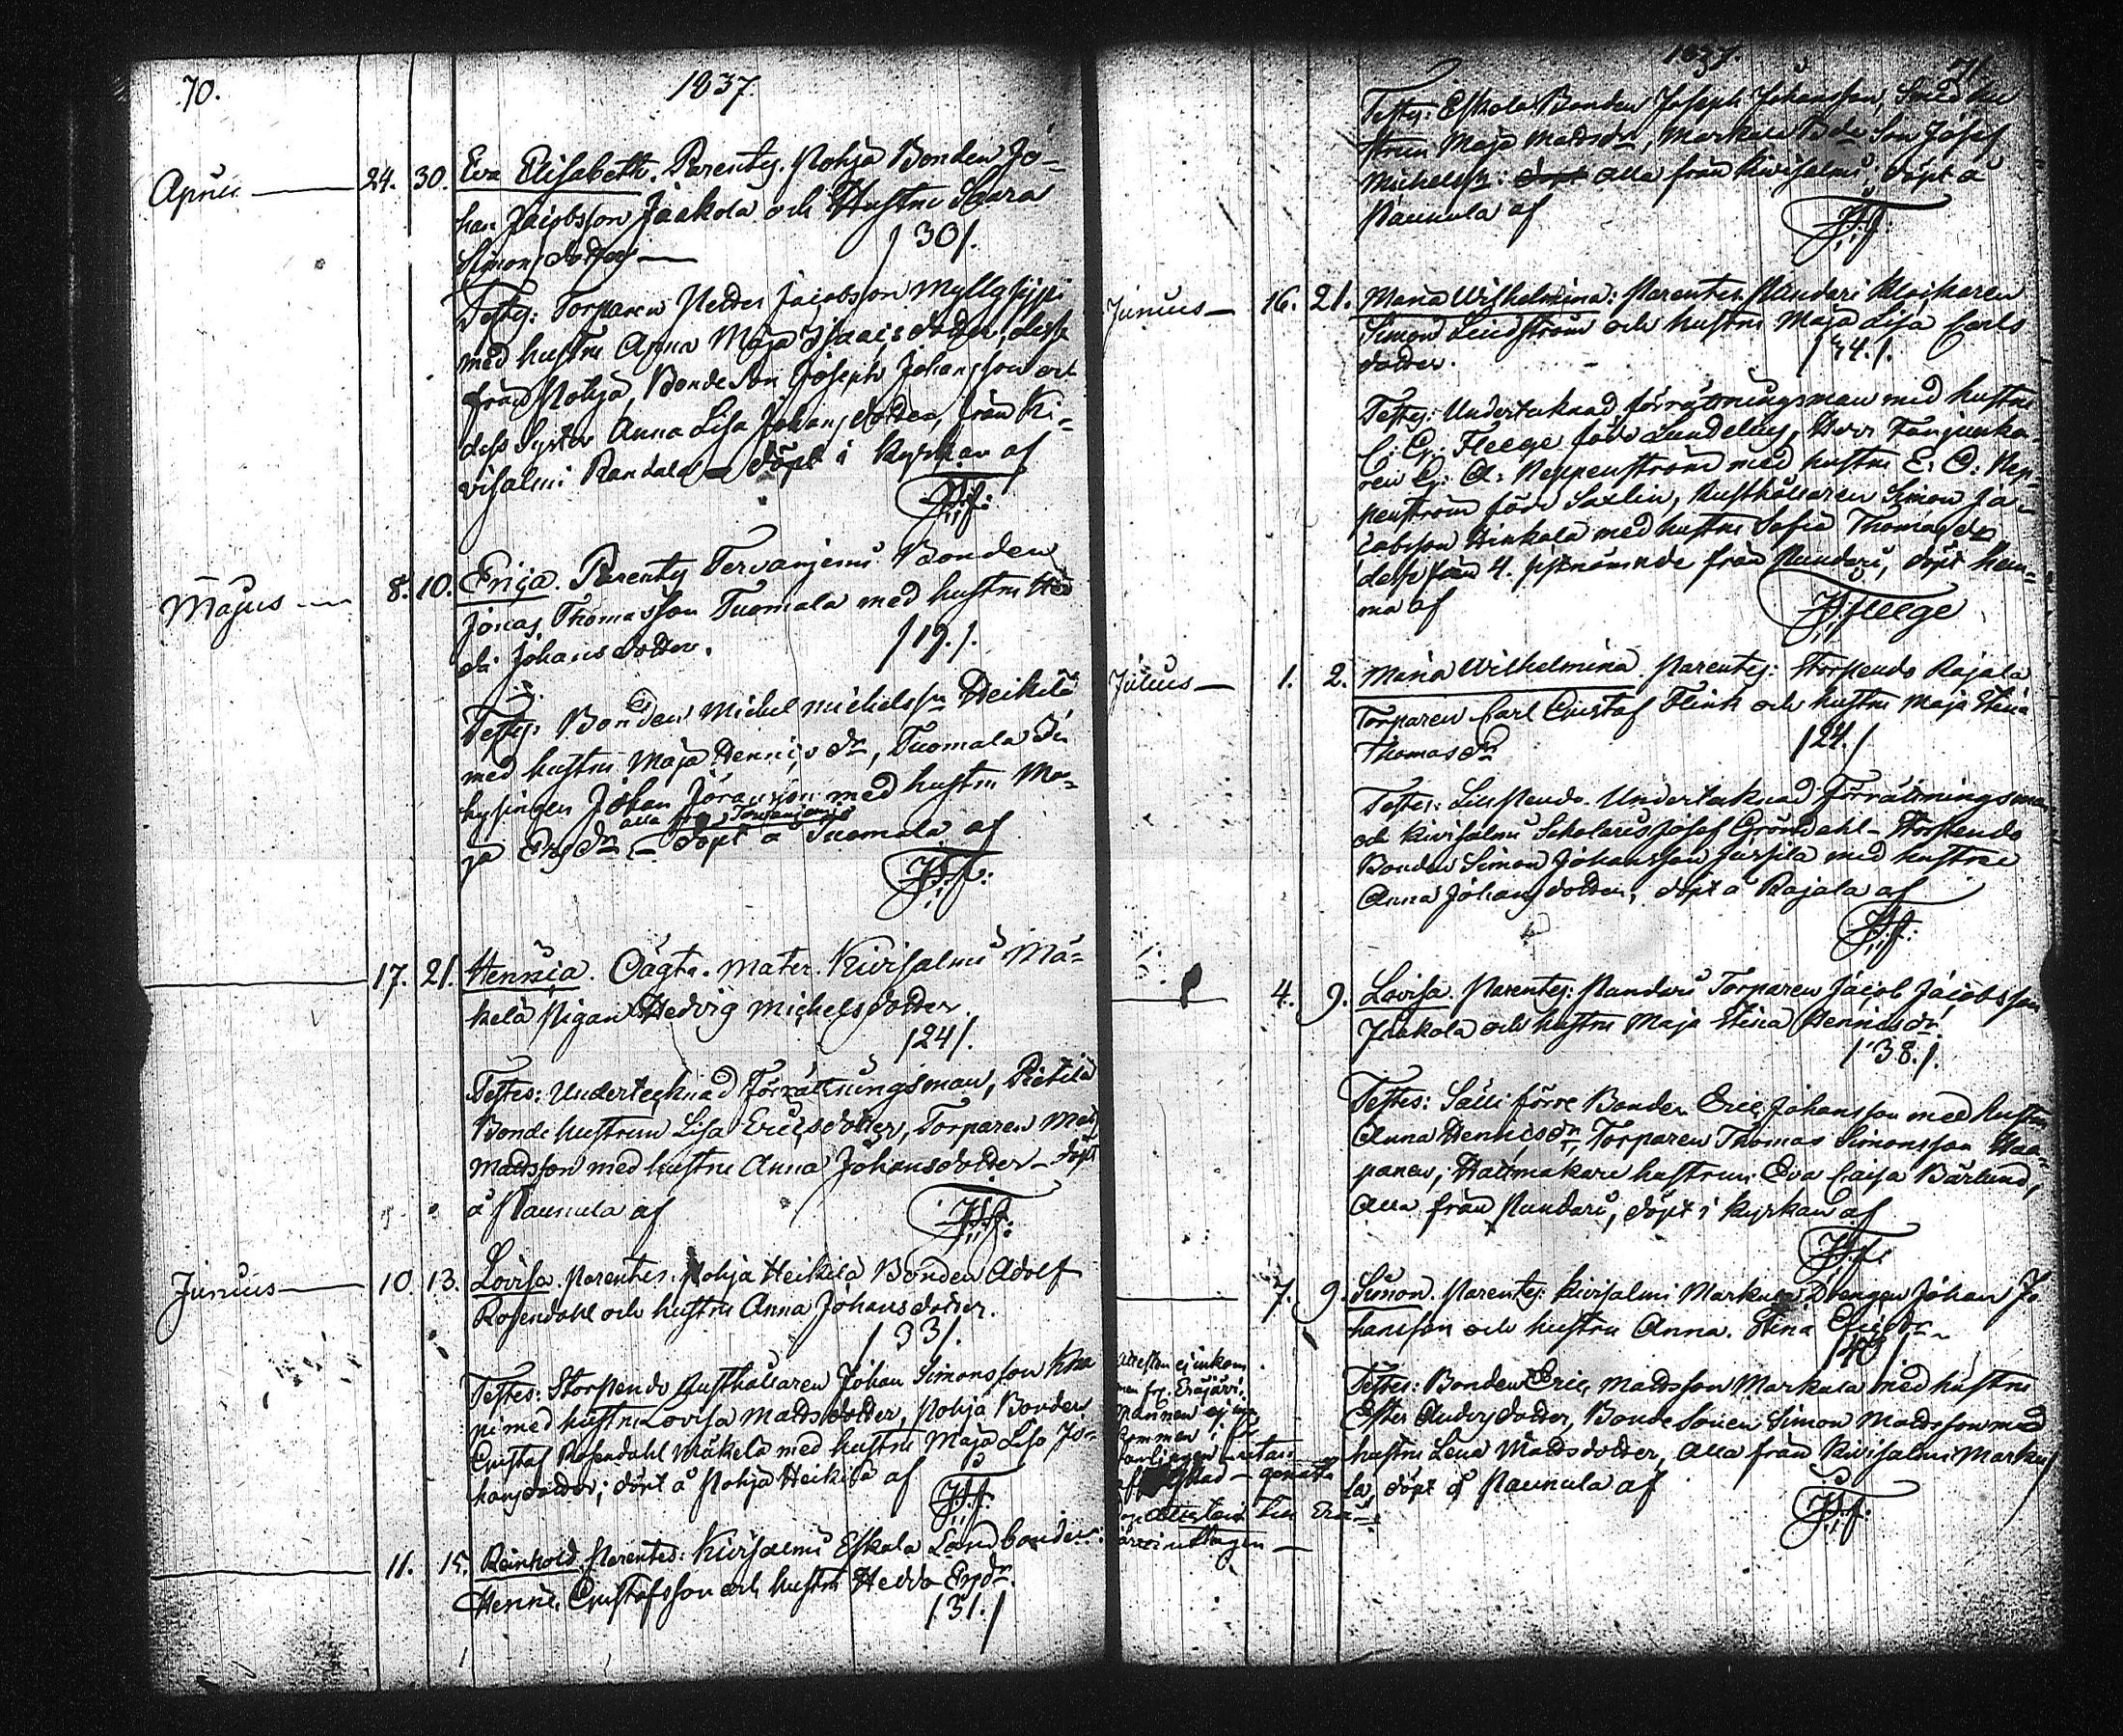 70.
1837.
Aprill — 24. 30. Eva Elisabeth. Parentes. Pohja Bonden Jo-
han Jacobsson Jaakola och Hustru Saara
Simons dotter —
/ 30 /.
Testes: Torparen Petter Jacobsson Myllysippi
med hustru Anna Maja Isaacs dotter, desse
från Pohja, Bonde Son Joseph Johansson och
dess Syster Anna Lisa Johans dotter, från Ki-
visalmi Randala — döpt i Kyrkan af
J. F.
Majus — 8. 10. Erica. Parentes Tervanjemi Bonden
Jonas Thomasson Tuomala med hustru Hed
da Johans dotter.
/ 19. /.
Testes: Bonden Michel Michelss:n Heikilä
med hustru Maja Henrics dr, Tuomala In
hysingen Johan Göransson med hustru Ma-
alla fr. Tervanjemi
ja Ersdr — döpt å Tuomala af
J. F:
17. 21. Henrica. Oägta. Mater. Kivisalmi Mä-
kelä Pigan Hedvig Michelsdotter.
/ 24 /.
Testes: Undertecknad Förrättningsman, Pietilä
Bonde hustrun Lisa Ericsdotter, Torparen Mats
Matsson med hustru Anna Johansdotter — döpt
å Paunula af
J. F:
Junius — 10. 13. Lovisa. Parentes. Pohja Heikilä Bonden Adolf
Rosendahl och hustru Anna Johans dotter.
/ 33 /.
Testes: Storpendo Rusthållaren Johan Simonsson Kna
pi med hustru Lovisa Mats dotter, Pohja Bonden
Gustaf Rosendahl Mäkelä med hustru Maja Lisa Jo-
hansdotter; döpt å Pohja Heikilä af
J. F:
11. 15. Reinhold. Parentes: Kivisalmi Eskola Landbonden
Henric Gustafsson och hustru Hedda Ersdr.
/ 31. /
1837.
71.
Testes: Eskola Bonden Joseph Johansson, hu
strun Maja Matsdr, Markula Bde Son Josef
Michelss: alla från Kivisalmi; döpt å
Paunula af
J. F:
Junius — 16. 21. Maria Wilhelmina: Parentes. Pundari Klockaren
Simon Lindström och hustru Maja Lisa Carls
dotter.
/ 34. /.
Testes: Undertecknad förrättningsman med hustru
Fleege född Lundelius, Herr Fanjunka-
ren G: A: Neppenström med hustru E. O: Nep-
penström född Saxlin, Rusthållaren Simon Ja-
cobsson Hinkala med hustru Sofia Thomasdr
desse 4. sistnämnde från Pundari, döpt hem-
ma af
J. Fleege
Julius — 1. 2. Maria Wilhelmina. Parentes: Storpendo Rajala
Torparen Carl Gustaf Flink och hustru Maja Stina
Thomasdr
/ 24. /
Testes: Lillpendo. Undertecknad Förrättningsman
och Kivisalmi Scholaris Josef Gröndahl — Storpendo
Bonden Simon Johansson Jussila med hustru
Anna Johans dotter, döpt å Rajala af
J. F:
4. 9. Lovisa. Parentes: Pundari Torparen Jacob Jacobsson
Jaakola och hustru Maja Stina Henricsdr
/ 38. /.
Testes: Salli förre Bonden Eric Johansson med hustru
Anna Henricsdr, Torparen Thomas Simonsson Haa-
panen, Hattmakare hustrun Eva Caisa Bärlund,
alla från Pundari, döpt i kyrkan af
J. F.
7. 9. Simon. Parentes: Kivisalmi Markula Drengen Johan Jo
hansson och hustru Anna Stina Ericsdr
/ 40 /
Testes: Bonden Eric Matsson Markula med hustru
Ester Anders dotter, Bonde Sonen Simon Matsson med
hustru Lena Matsdotter, alla från Kivisalmi Marku
la, döpt å Paunula af
J. F:
Attesten ej inkom
men fr. Eräjärvi.
Mannen ej in
kommen i För
samlingen utan